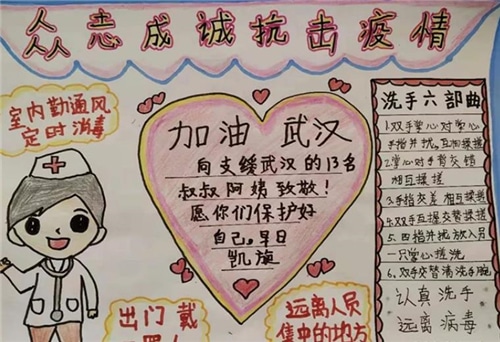 众志成诚抗击疫情
室内勤通风
定时消毒
加油 武汉
向支缓武汉的13名
叔叔阿姨致敬!
愿你们保护好
自己,早日
凯旋
洗手六部曲
1.双手掌心对掌心
手指并扰,互相揉搓
2.掌心对手背交错
相互揉搓
3.手指交差 相互揉搓
4.双手互握交替揉搓
5.四指并扰放入另
一只掌心搓洗
6.双手交替清洗手腕
认真洗手
远离病毒
出门戴
远离人员
集中的地方